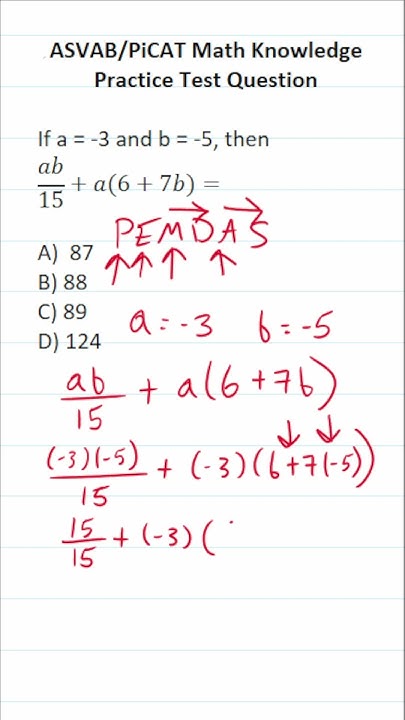 ASVAB/PiCAT Math Knowledge
Practice Test Question
If a = -3 and b = -5, then
ab/15 + a(6 + 7b) =
PEMDAS
A) 87
B) 88
C) 89
D) 124
a = -3 b = -5
ab/15 + a(6+7b)
(-3)(-5)/15 + (-3)(6+7(-5))
15/15 + (-3)(